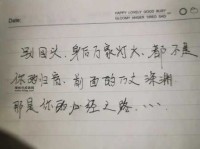 HAPPY LONELY GOOD BUSY
Date:
别回头,身后万家灯火,都不是
你的归宿,前面的万丈深渊
那是你的必经之路.....